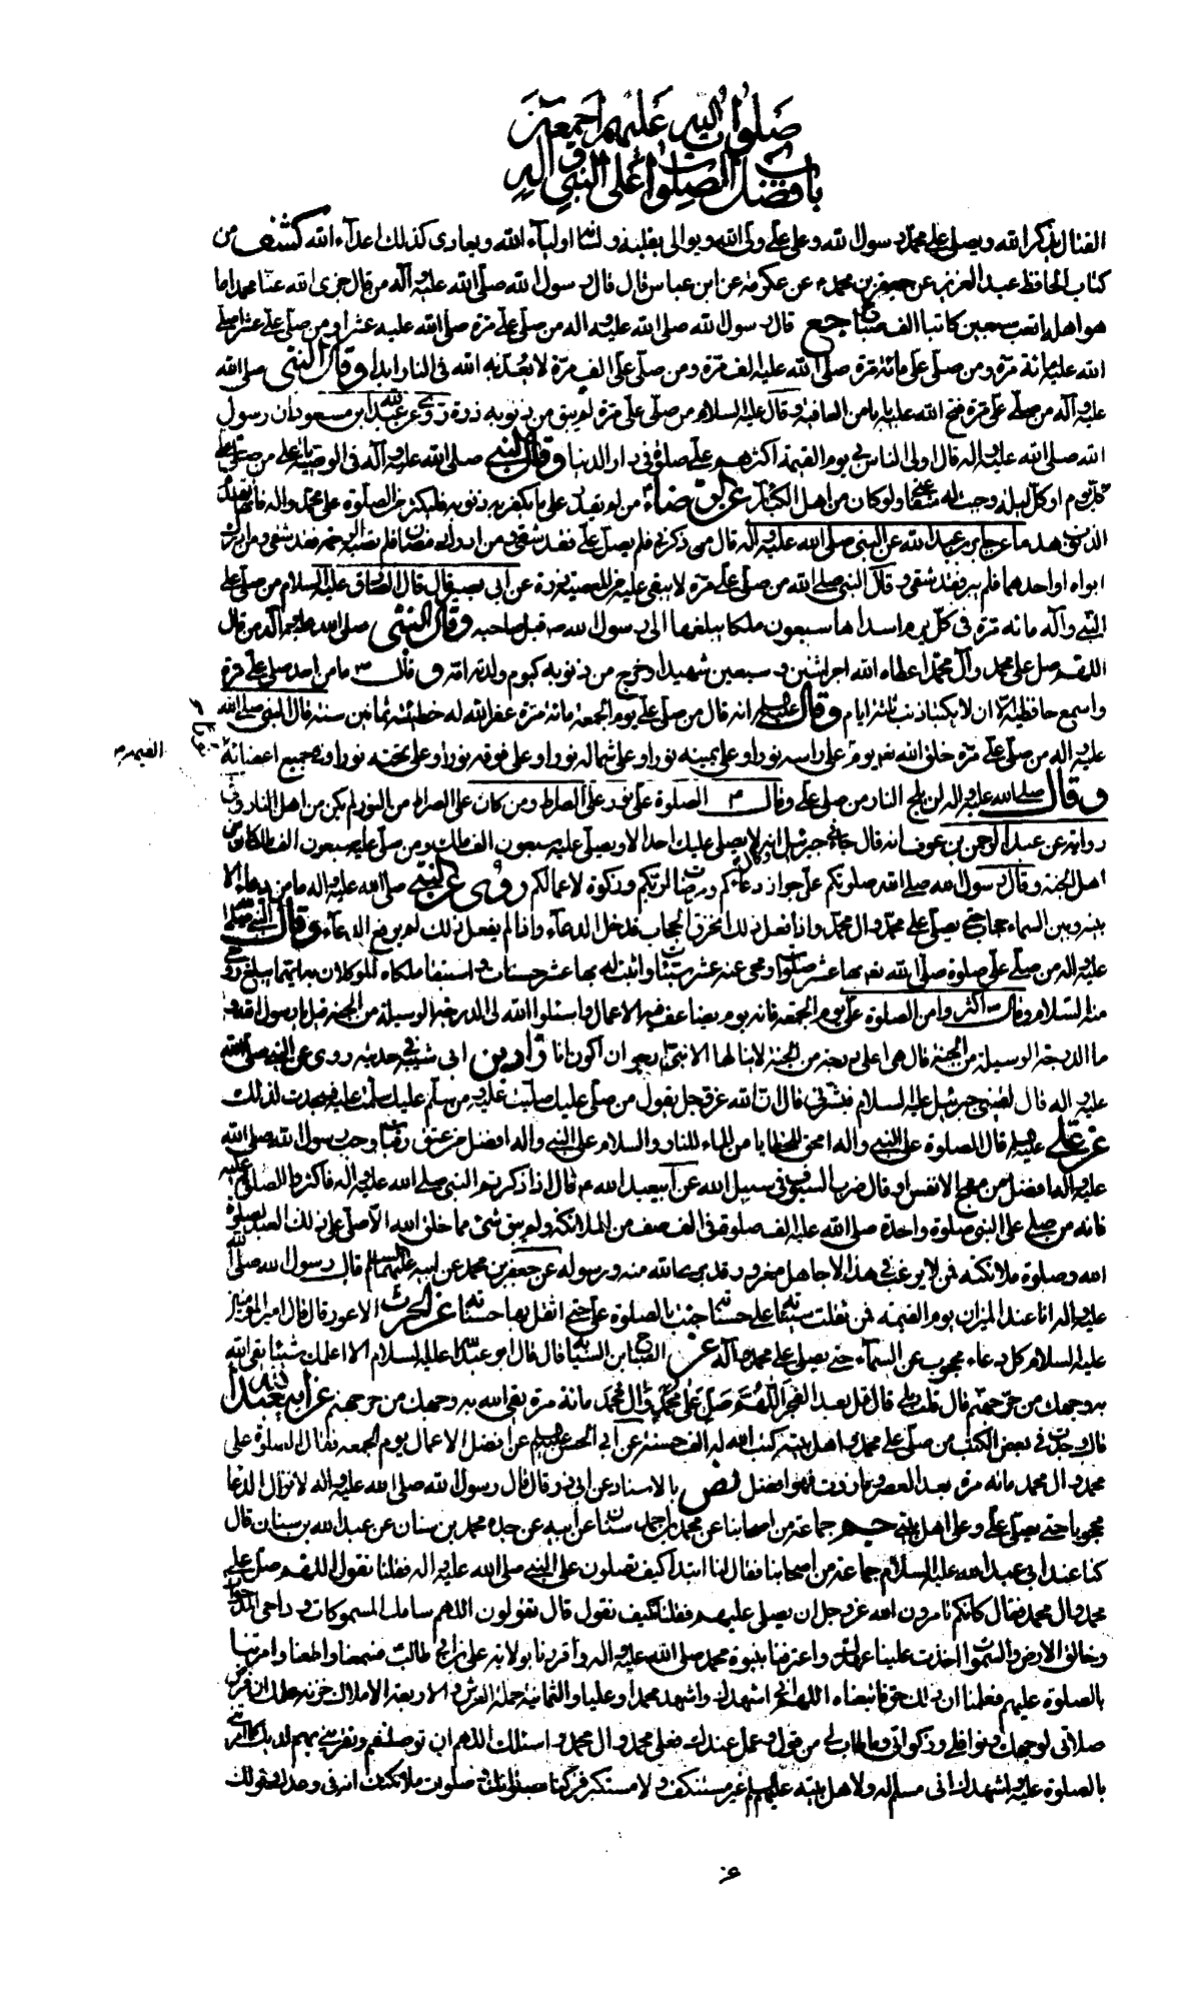 صلوات الله عليهم اجمعين
باب فضل الصلوات على النبي واله
القتال يذكر الله ويصلي على محمد رسول الله وعلى علي ولي الله ويوالي بقلبه ولسانه اولياء الله ويعادي كذلك اعداء الله كشف من
كتاب الحافظ عبد العزيز عن جعفر بن محمد عن عكرمة عن ابن عباس قال قال رسول الله صلى الله عليه وآله من قال جزى الله عنا محمدا ما
هو اهله اتعب سبعين كاتبا الف صباح جع قال رسول الله صلى الله عليه واله من صلى علي مرة صلى الله عليه عشرا ومن صلى علي عشرا صلى
الله عليه مائة مرة ومن صلى علي مائة مرة صلى الله عليه الف مرة ومن صلى علي الف مرة لا يعذبه الله في النار ابدا وقال النبي صلى الله
عليه وآله من صلى علي مرة فتح الله عليه بابا من العافية وقال عليه السلام من صلى علي مرة لم يبق من ذنوبه ذرة روي عن عبد الله ابن مسعود ان رسول
الله صلى الله عليه واله قال اولى الناس بي يوم القيمة اكثرهم علي صلوة في دار الدنيا وقال النبي صلى الله عليه وآله في الوصية يا علي من صلى علي
كل يوم او كل ليلة وجبت له شفاعتي ولو كان من اهل الكبائر عن الرضا من لم يقدر على ما يكفر به ذنوبه فليكثر من الصلوة على محمد واله فانها تهدم
الذنوب هدما عن جابر بن عبد الله عن النبي صلى الله عليه واله قال من ذكرني فلم يصل علي فقد شقي ومن ادرك رمضان فلم تصبه الرحمة فقد شقي ومن ادرك
ابواه او احدهما فلم يبر فقد شقي وقال النبي صلى الله من صلى علي مرة لا يبقى عليه من المعصية ذرة عن ابي بصير قال قال الصادق عليه السلام من صلى على
النبي وآله مائة مرة في كل يوم اسداها سبعون ملكا يبلغها الى رسول الله ص قبل صاحبه وقال النبي صلى الله عليه وآله من قال
اللهم صل على محمد وآل محمد اعطاه الله اجر اثنين وسبعين شهيدا وخرج من ذنوبه كيوم ولدته امه وقال ص ما من احد صلى علي مرة
واسمع حافظيه الا ان لا يكتبا ذنبه ثلثة ايام وقال عليه السلم انه قال من صلى علي يوم الجمعة مائة مرة غفر الله له خطيئة ثمانين سنة قال النبي صلى الله
القيمة
عليه واله من صلى علي مرة خلق الله نع يوم على راسه نورا وعلى يمينه نورا وعلى شماله نورا وعلى فوقه نورا وعلى تحته نورا وفي جميع اعضائه
وقال صلى الله عليه واله لن يلج النار من صلى علي وقال ص الصلوة علي نور على الصراط ومن كان على الصراط من النور لم يكن من اهل النار وفي
رواية عن عبد الرحمن بن عوف انه قال جائني جبرئيل انه لا يصلي عليك احد الا ويصلي عليه سبعون الف ملك ومن صلى عليه سبعون الف ملك كان من
اهل الجنة وقال رسول الله صلى الله صلوتكم علي جواز دعائكم ومرضاة لربكم وزكوة لاعمالكم روي عن النبي صلى الله عليه واله ما من دعاء الا
بينه وبين السماء حجاب حتى يصلي على محمد وال محمد واذا فعل ذلك انخرق الحجاب فدخل الدعاء واذا لم يفعل ذلك لم يرفع الدعاء وقال النبي صلى الله
عليه واله من صلى علي صلوة صلى الله نع بها عشر صلوات ومحى عنه عشر سيئات واثبت له بها عشر حسنات واستبقا ملكاه الموكلان به ايهما يبلغ روحي
منه السلام وقال ص اكثروا من الصلوة علي يوم الجمعة فانه يوم يضاعف فيه الاعمال واسئلوا الله لي الدرجة الوسيلة من الجنة قيل يا رسول الله
ما الدرجة الوسيلة من الجنة قال هي اعلى درجة من الجنة لا ينالها الا نبي ارجو ان اكون انا زاد بن ابي شيبة في حديثه روي عن النبي صلى الله
عليه واله قال لقيني جبرئيل عليه السلام فبشرني قال ان الله عز وجل يقول من صلى عليك صليت عليه ومن سلم عليك سلمت عليه فسجدت لذلك
عن علي عليه السلم قال الصلوة على النبي واله امحق للخطايا من الماء للنار والسلام على النبي واله افضل من عتق رقاب وحب رسول الله صلى الله
عليه واله افضل من مهج الانفس او قال ضرب السيوف في سبيل الله عن ابي عبد الله ع قال اذا ذكر النبي صلى الله عليه واله فاكثروا الصلوة عليه
فانه من صلى على النبي صلوة واحدة صلى الله عليه الف صلوة في الف صف من الملائكة ولم يبق شئ مما خلق الله الا صلى على ذلك العبد لصلوة
الله وصلوة ملائكته فمن لا يرغب في هذا الا جاهل مغرور قد برئ الله منه ورسوله عن جعفر بن محمد عن ابيه عليهما السلم قال رسول الله صلى الله
عليه واله انا عند الميزان يوم القيمة فمن ثقلت سيئاته على حسناته جئت بالصلوة علي حتى اثقل بها حسناته عن الحرث الاعور قال قال امير المؤمنين
عليه السلام كل دعاء محجوب عن السماء حتى يصلي على محمد وآله عن الصباح ابن السيابة قال قال ابو عبد الله عليه السلام الا اعلمك شيئا يقي الله
به وجهك من حر جهنم قال قلت بلى قال قل بعد الفجر اللهم صل على محمد وال محمد مائة مرة يقي الله به وجهك من حر جهنم عن ابي عبد الله
قال وجدت في بعض الكتب من صلى على محمد واهل بيته كتب الله له الف حسنة عن ابي الحسن عليه السلم عن افضل الاعمال يوم الجمعة فقال الصلوة على
محمد وال محمد مائة مرة بعد العصر وما زدت فهو افضل نص بالاسناد عن ابي ذر قال قال رسول الله صلى الله عليه واله لا يزال الدعا
محجوبا حتى يصلي علي وعلى اهل بيتي جم جماعة من اصحابنا عن محمد بن احمد سنان عن ابيه عن جده محمد بن سنان عن عبد الله بن سنان قال
كنا عند ابي عبد الله عليه السلام جماعة من اصحابنا فقال لنا ابتداء كيف تصلون على النبي صلى الله عليه واله فقلنا نقول اللهم صل على
محمد وال محمد فقال كانكم تامرون الله عز وجل ان يصلي عليهم فقلنا فكيف نقول قال تقولون اللهم سامك المسموكات وداحي المدحوات
وخالق الارض والسموات اخذت علينا عهدك واعترفنا بنبوة محمد صلى الله عليه واله واقررنا بولاية علي بن ابي طالب فسمعنا واطعنا وامرتنا
بالصلوة عليهم فعلمنا ان ذلك حق فاتبعناه اللهم اني اشهدك واشهد محمدا وعليا والثمانية حملة العرش والاربعة الاملاك خزنة علمك ان فرض
صلاتي لوجهك ونوافلي وزكواتي وما طاب لي من قول وعمل عندك فعلى محمد وال محمد واسئلك اللهم ان توصلني بهم وتقربني بهم لديك كما امرتني
بالصلوة عليه واشهدك اني مسلم له ولاهل بيته عليهم السلم غير مستنكف ولا مستكبر فزكنا بصلواتك وصلوات ملائكتك انه في وعدك وقولك